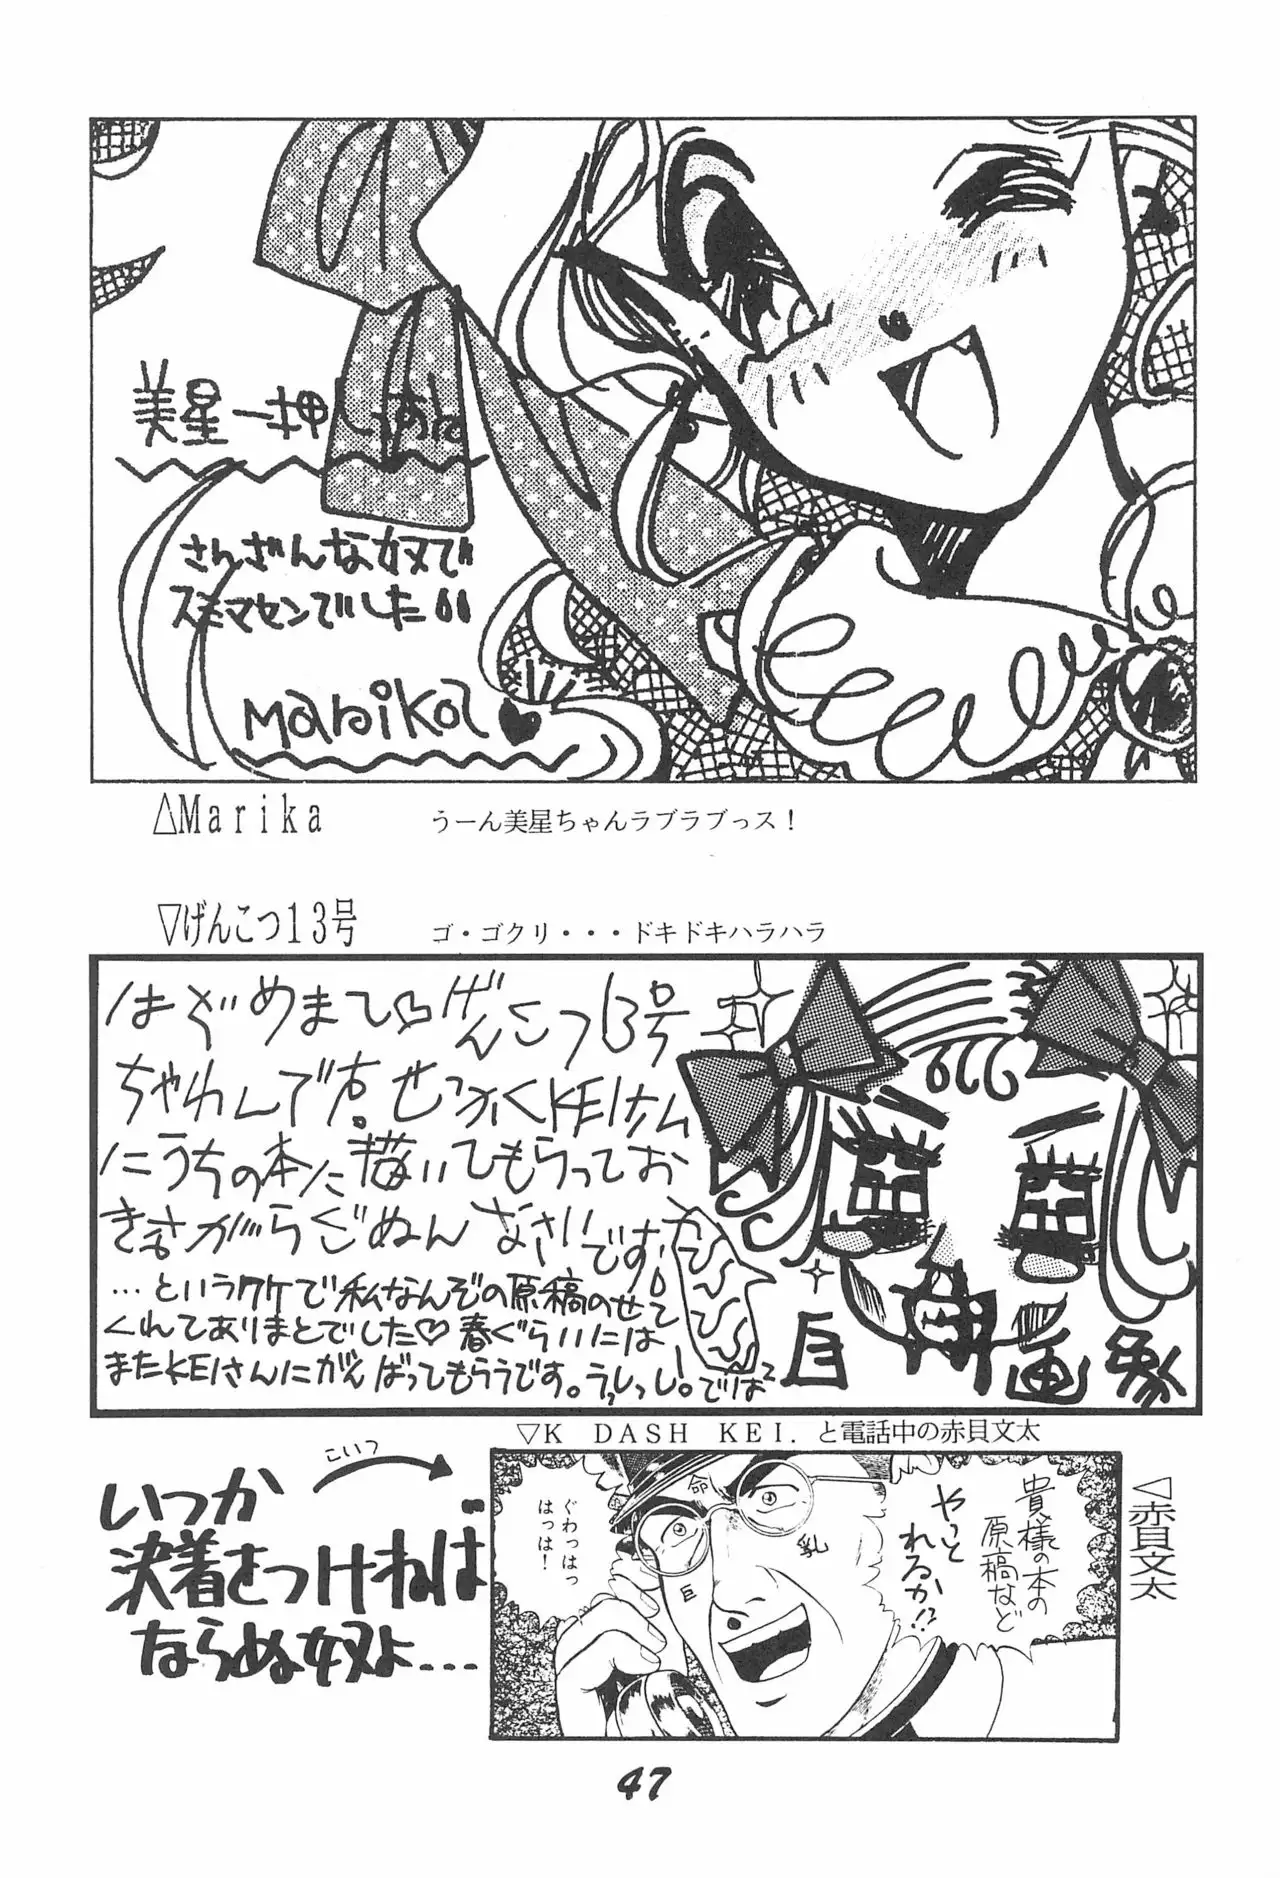 美星一押しよね
さんざんな奴で
スミマセンでした
Marika♥
△Marika
うーん美星ちゃんラブラブっス！
▽げんこつ13号
ゴ・ゴクリ・・・ドキドキハラハラ
はぢめまて♡げんこつ13号
ちゃわんです。せっかくKEIさん
にうちの本に描いてもらってお
きまがらごめんなさいです。
…というワケで私なんぞの原稿のせて
くれてありまとでした♡春ぐらいには
またKEIさんにがんばってもらうです。うっしっし！では²
自画像
▽K DASH KEI．と電話中の赤貝文太
こいつ
いつか
決着をつけねば
ならぬ奴よ…
貴様の本の
原稿など
やって
れるか!?
ぐわっはっ
はっは！
命
乳
巨
◁赤貝文太
47